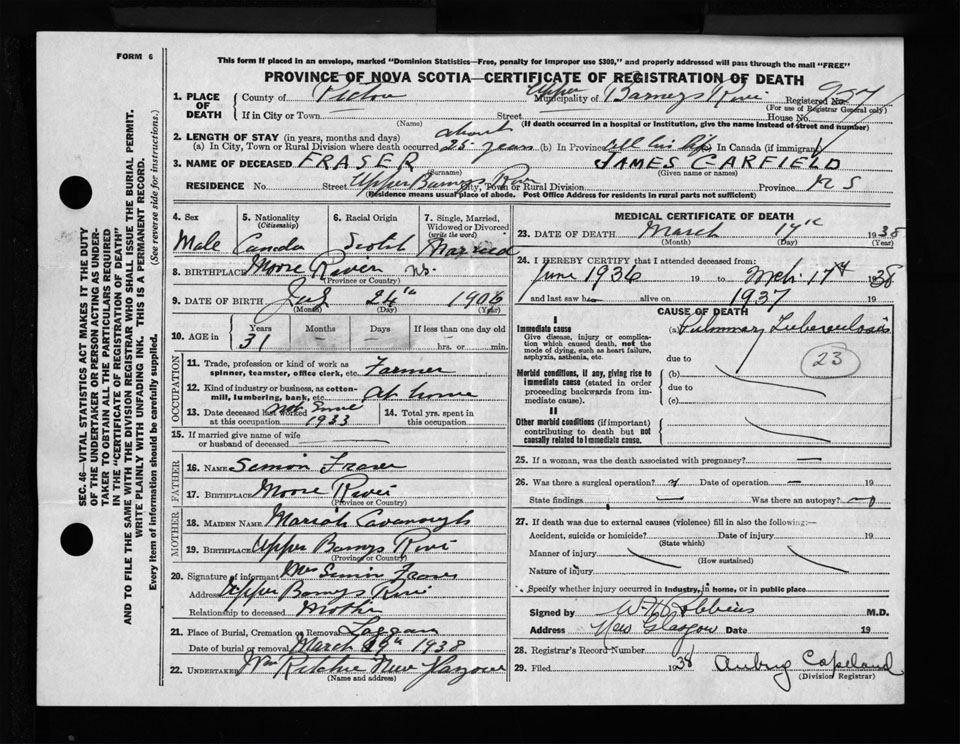 FORM 6
This form if placed in an envelope, marked "Dominion Statistics—Free, penalty for improper use $300," and properly addressed will pass through the mail "FREE"
PROVINCE OF NOVA SCOTIA—CERTIFICATE OF REGISTRATION OF DEATH
1. PLACE OF DEATH
County of Pictou Municipality of Upper Barneys River Registered No. 957
(For use of Registrar General only)
If in City or Town Street House No.
(Name) (If death occurred in a hospital or institution, give the name instead of street and number)
2. LENGTH OF STAY (in years, months and days)
(a) In City, Town or Rural Division where death occurred about 25 years (b) In Province All his life (c) In Canada (if immigrant)
3. NAME OF DECEASED FRASER JAMES GARFIELD
(Surname) (Given name or names)
RESIDENCE No. Street Upper Barneys River City, Town or Rural Division Province N S
(Residence means usual place of abode. Post Office Address for residents in rural parts not sufficient)
4. Sex
Male
5. Nationality (Citizenship)
Canada
6. Racial Origin
Scotch
7. Single, Married, Widowed or Divorced (write the word)
Married
8. BIRTHPLACE Moose River N.S.
(Province or Country)
9. DATE OF BIRTH 24th 1906
(Month) (Day) (Year)
10. AGE in Years Months Days If less than one day old
31 — — hrs. or min.
OCCUPATION
11. Trade, profession or kind of work as spinner, teamster, office clerk, etc. Farmer
12. Kind of industry or business, as cotton-mill, lumbering, bank, etc. At home
13. Date deceased last worked at this occupation not since 1933
14. Total yrs. spent in this occupation
15. If married give name of wife or husband of deceased
FATHER
16. NAME Simon Fraser
17. BIRTHPLACE Moose River
(Province or Country)
MOTHER
18. MAIDEN NAME Mariah Cavanagh
19. BIRTHPLACE Upper Barneys River
(Province or Country)
20. Signature of informant Mrs Simon Fraser
Address Upper Barneys River
Relationship to deceased Mother
21. Place of Burial, Cremation or Removal Laggan
Date of burial or removal March 19th 1938
22. UNDERTAKER Wm Ritchie New Glasgow
(Name and address)
MEDICAL CERTIFICATE OF DEATH
23. DATE OF DEATH March 17th 1938
(Month) (Day) (Year)
24. I HEREBY CERTIFY that I attended deceased from:
June 1936 19 to Mch. 17th 1938
and last saw h alive on 1937 19
CAUSE OF DEATH
I
Immediate cause
Give disease, injury or complication which caused death, not the mode of dying, such as heart failure, asphyxia, asthenia, etc.
(a) Pulmonary Tuberculosis
due to
23
Morbid conditions, if any, giving rise to immediate cause (stated in order proceeding backwards from immediate cause).
(b)
due to
(c)
II
Other morbid conditions (if important) contributing to death but not causally related to immediate cause.
25. If a woman, was the death associated with pregnancy? —
26. Was there a surgical operation? Date of operation — 19
State findings — Was there an autopsy?
27. If death was due to external causes (violence) fill in also the following:—
Accident, suicide or homicide? Date of injury 19
(State which)
Manner of injury
(How sustained)
Nature of injury
Specify whether injury occurred in industry, in home, or in public place
Signed by M.D.
Address New Glasgow Date 19
28. Registrar's Record Number
29. Filed 1938 Aubrey Copeland
(Division Registrar)
SEC. 46—VITAL STATISTICS ACT MAKES IT THE DUTY
OF THE UNDERTAKER OR PERSON ACTING AS UNDER-
TAKER TO OBTAIN ALL THE PARTICULARS REQUIRED
IN THE "CERTIFICATE OF REGISTRATION OF DEATH"
AND TO FILE THE SAME WITH THE DIVISION REGISTRAR WHO SHALL ISSUE THE BURIAL PERMIT.
WRITE PLAINLY WITH UNFADING INK. THIS IS A PERMANENT RECORD.
Every item of information should be carefully supplied. (See reverse side for instructions.)